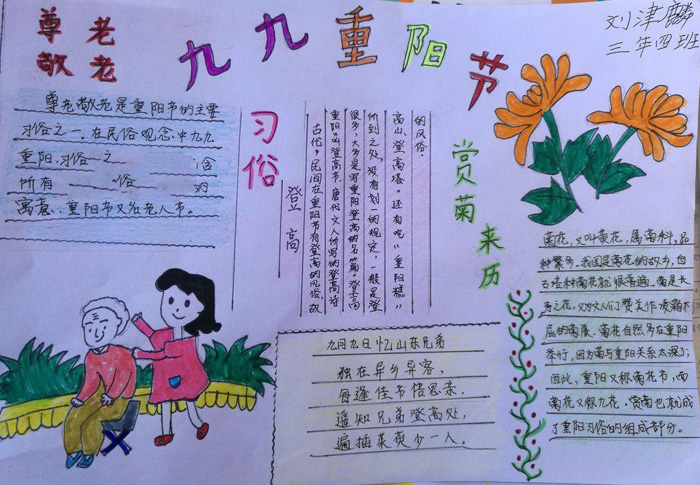 尊老
敬老
九九重阳节
刘津麟
三年四班
尊老敬老是重阳节的主要
习俗之一,在民俗观念中九九
重阳,习俗一之 含
所有 俗 对
寓意.重阳节又沿老人节。
习俗
登高
古代,民间在重阳节有登高的风俗,故
重阳叫登高节.唐代文人所写的登高诗
很多,大多是写重阳登高的名篇.登高
所到之处,没有划一的规定,一般是登
高山、登高塔。还有吃“重阳糕”
的风俗.
赏菊来历
菊花,又叫黄花,属菊科,品
种繁多,我国是菊花的故乡,自
古培种菊花就很普遍.菊是长
寿之花,又为文人们赞美作凌霜不
屈的象征、菊花自然多在重阳
举行,因为菊与重阳关系太深了,
因此,重阳又称菊花节,而
菊花又称九花.赏菊也就成
了重阳习俗的组成部分。
九月九日忆山东兄弟
独在异乡为异客,
每逢佳节倍思亲.
遥知兄弟登高处,
遍插茱萸少一人。